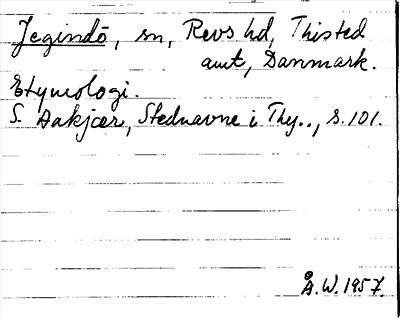 Jegindö, sn, Revs hd, Thisted
amt, Danmark.
Etymologi.
S. Aakjær, Stednavne i Thy.., s.101.
Å.W.1957.